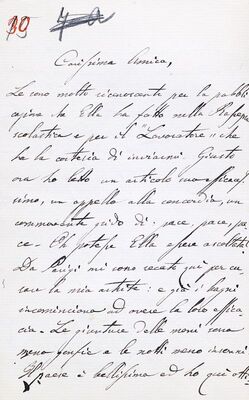 39
7a
Carissima Amica,
Le sono molto riconoscente per la pubbli
cazione che Ella ha fatto nella Rassegna
scolastica e per il "Lavoratore" che
ha la cortesia di inviarmi. Giusto
ora ho letto un articolo suo efficacis
simo, un appello alla concordia, un
commovente grido di pace, pace, pa
ce. Oh potesse Ella essere ascoltata!
Da Parigi mi sono recata qui per cu
rare la mia artrite: e già i bagni
incominciano ad avere la loro effica
cia. Le giunture delle mani sono
meno gonfie e le notti meno insonni
Il paese è bellissimo ed ho qui otti